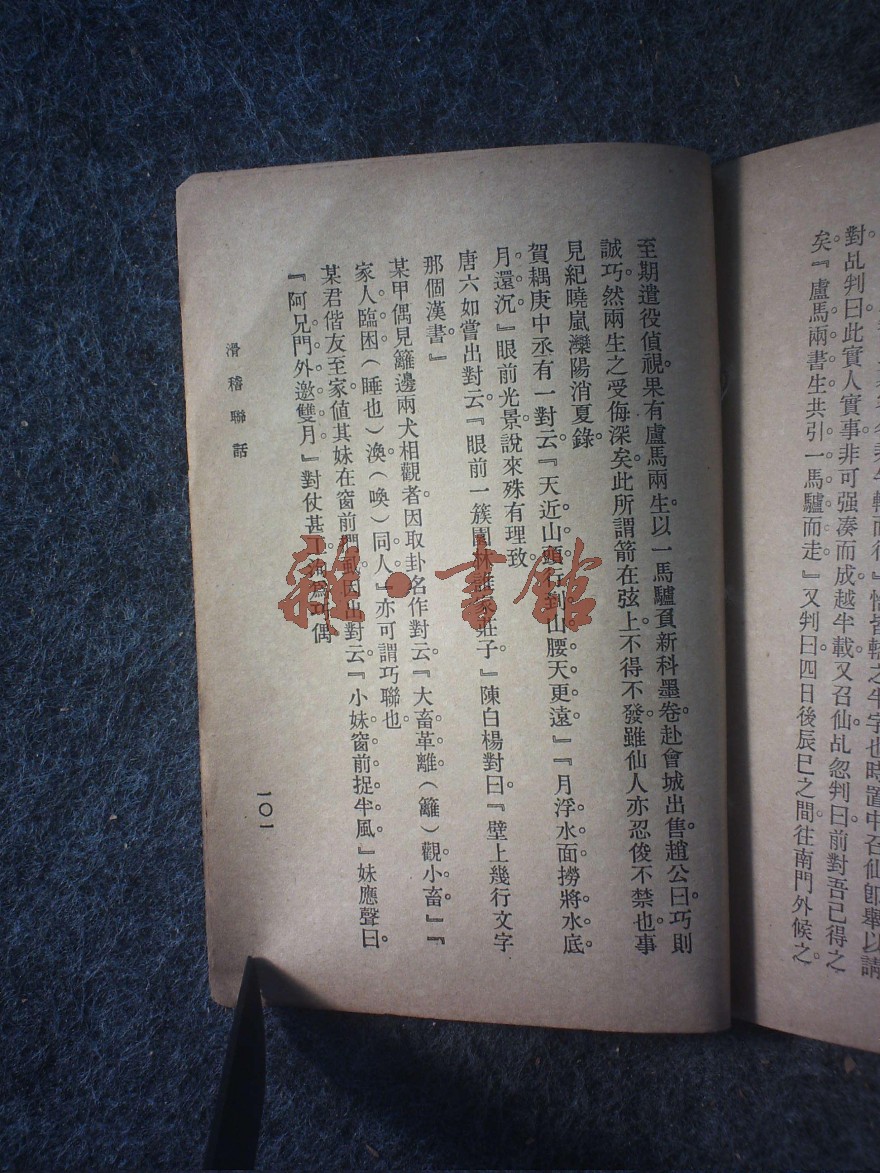 對乩判曰此實人實事非可强湊而成越半載又召仙乩忽判曰前對吾已得之
矣。『盧馬兩書生共引一馬驢而走』又判曰四日後辰巳之間往南門外候之。
至期遣役偵視。果有盧馬兩生。以一馬驢負新科墨卷赴會城出售。趙公曰。巧則
誠巧。然兩生之受侮深矣。此所謂箭在弦上。不得不發。雖仙人亦忍俊不禁也。事
見紀曉嵐灤陽消夏錄。
賀耦庚中丞有一對云。『天近山頭。行到山腰天更遠。』『月浮水面。撈將水底
月還沉。』眼前光景。說來殊有理致。
唐六如嘗出對云。『眼前一簇園林誰家莊子』陳白楊對曰。『壁上幾行文字
那個漢書。』
某甲偶見籬邊兩犬相觀者。因取卦名作對云。『大畜革離（籬）觀小畜。』『
家人臨困（睡也）渙（喚）同人。』亦可謂巧聯也
某君偕友至家。値其妹在窗前 風。因出對云。『小妹窗前捉半風。』妹應聲曰。
『阿兄門外邀雙月』對仗甚工 爲巧偶
滑稽聯話
一〇一
雜·書館